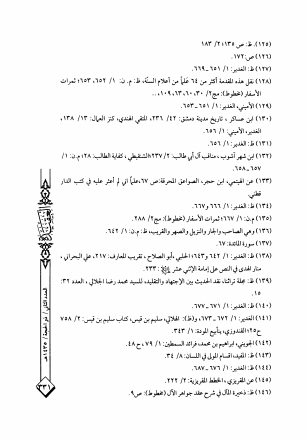 (١٢٥). ظ: ص ١٣٥؛ ٢/ ١٨٣
(١٢٦) ص: ١٧٢.
(١٢٧) ظ: الغدير: ١/ ٦٥١ـ ٦٦٩.
(١٢٨) نقل هذه المقدمة أكثر من ٦٤ علماً من أعلام السنّة، ظ: م. ن: ١/ ٦٥٢، ٦٥٣؛ ثمرات
الأسفار (مخطوط): مج٢/ ٣٠، ٦٠، ٦٣، ١٠٩،...
(١٢٩) الأميني، الغدير: ١/ ٦٥١ـ ٦٥٣.
(١٣٠) ابن عساكر، تاريخ مدينة دمشق: ٤٢/ ٢٣٦، المتقي الهندي، كنز العمال: ١٣/ ١٣٨،
الغدير، الأميني: ١/ ٦٥٦.
(١٣١) ظ: الغدير: ١/ ٦٥٦.
(١٣٢) ابن شهر آشوب، مناقب آل أبي طالب: ٢/ ٢٣٧؛ الشنقيطي، كفاية الطالب: ٢٨؛ م. ن: ١/
٦٥٧ـ ٦٥٨.
(١٣٣) عن الهيتمي، ابن حجر، الصواعق المحرقة: ص ٦٧، علماً اني لم أعثر عليه في كتب الدار
قطني.
(١٣٤) ظ: الغدير: ١/ ٦٦٦ و٦٦٧.
(١٣٥) م. ن: ١/ ٦٦٧؛ ثمرات الأسفار (مخطوط): مج٢/ ٢٨٨.
(١٣٦) وهي الصاحب والجار والنزيل والصهر والقريب، ظ. م. ن: ١/ ٦٤٢.
(١٣٧) سورة المائدة: ٦٧.
(١٣٨) ظ: الغدير: ١/ ٦٤٢ و٦٤٣؛ الحلبي، أبو الصلاح، تقريب المعارف: ٢١٧، علي البحراني،
منار الهدى في النص على إمامة الإثني عشر: ٢٣٣.
(١٣٩) ظ: مجلة تراثنا، نقد الحديث بين الإجتهاد والتقليد، للسيد محمد رضا الجلالي، العدد ٣٢:
١٥.
(١٤٠) ظ: الغدير: ١/ ٦٧١ـ ٦٧٧.
(١٤١) ظ: الغدير: ١/ ٦٧٢ـ ٦٧٣، و(ظ): الهلالي، سليم بن قيس، كتاب سليم بن قيس: ٢/ ٧٥٨
ح٢٥؛ القندوزي، ينابيع المودة: ١/ ٣٤٣.
(١٤٢) الجويني، ابراهيم بن محمد، فرائد السمطين: ١/ ٧٩، ح ٤٨.
(١٤٣) ظ: المفيد، اقسام المولى في اللسان: ٨/ ٣٤.
(١٤٤) ظ: الغدير: ١/ ٦٧٦ـ ٦٨٧.
(١٤٥) عن المقريزي، الخطط المقريزية: ٢/ ٢٢٢.
(١٤٦) ظ: ذخيرة المآل في شرح عقد جواهر الآل (مخطوط): ص٩.
العدد الثاني / ذو الحجة / ١٤٣٥هـ
٣٣١